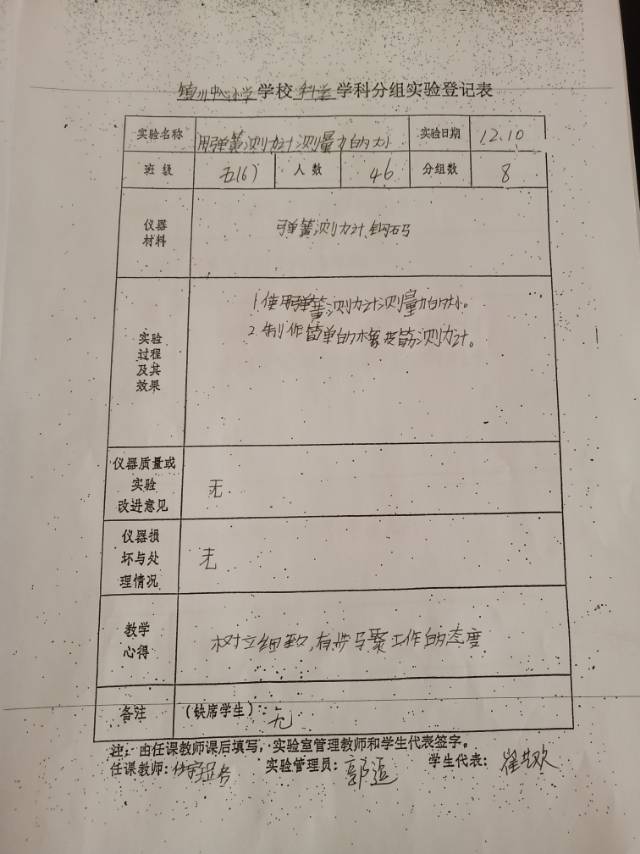 镇川中心小学学校科学学科分组实验登记表
实验名称 用弹簧测力计测量力的大小 实验日期 12.10
班级 五(6) 人数 46 分组数 8
仪器
材料
弹簧测力计、钩码
实验
过程
及其
效果
1.使用弹簧测力计测量力的大小。
2.制作简单的橡皮筋测力计。
仪器质量或
实验
改进意见
无
仪器损
坏与处
理情况
无
教学
心得
树立细致,有步骤工作的态度
备注 (缺席学生):无
注:由任课教师课后填写,实验室管理教师和学生代表签字。
任课教师: 实验管理员: 学生代表: